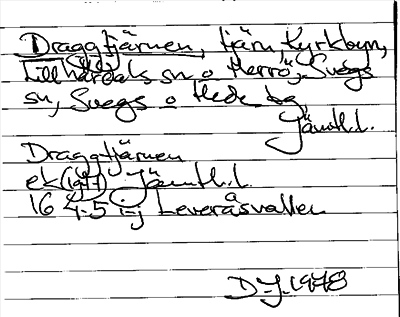 Draggtjärnen, tjärn, Kyrkbyn,
Lillhärdals sn o Herrö, Svegs
sn, Svegs o Hede
Jämtl.l.
Draggtjärnen
ek Jämtl.l.
16 4-5 i-j Leveråsvallen
D-J. 1978